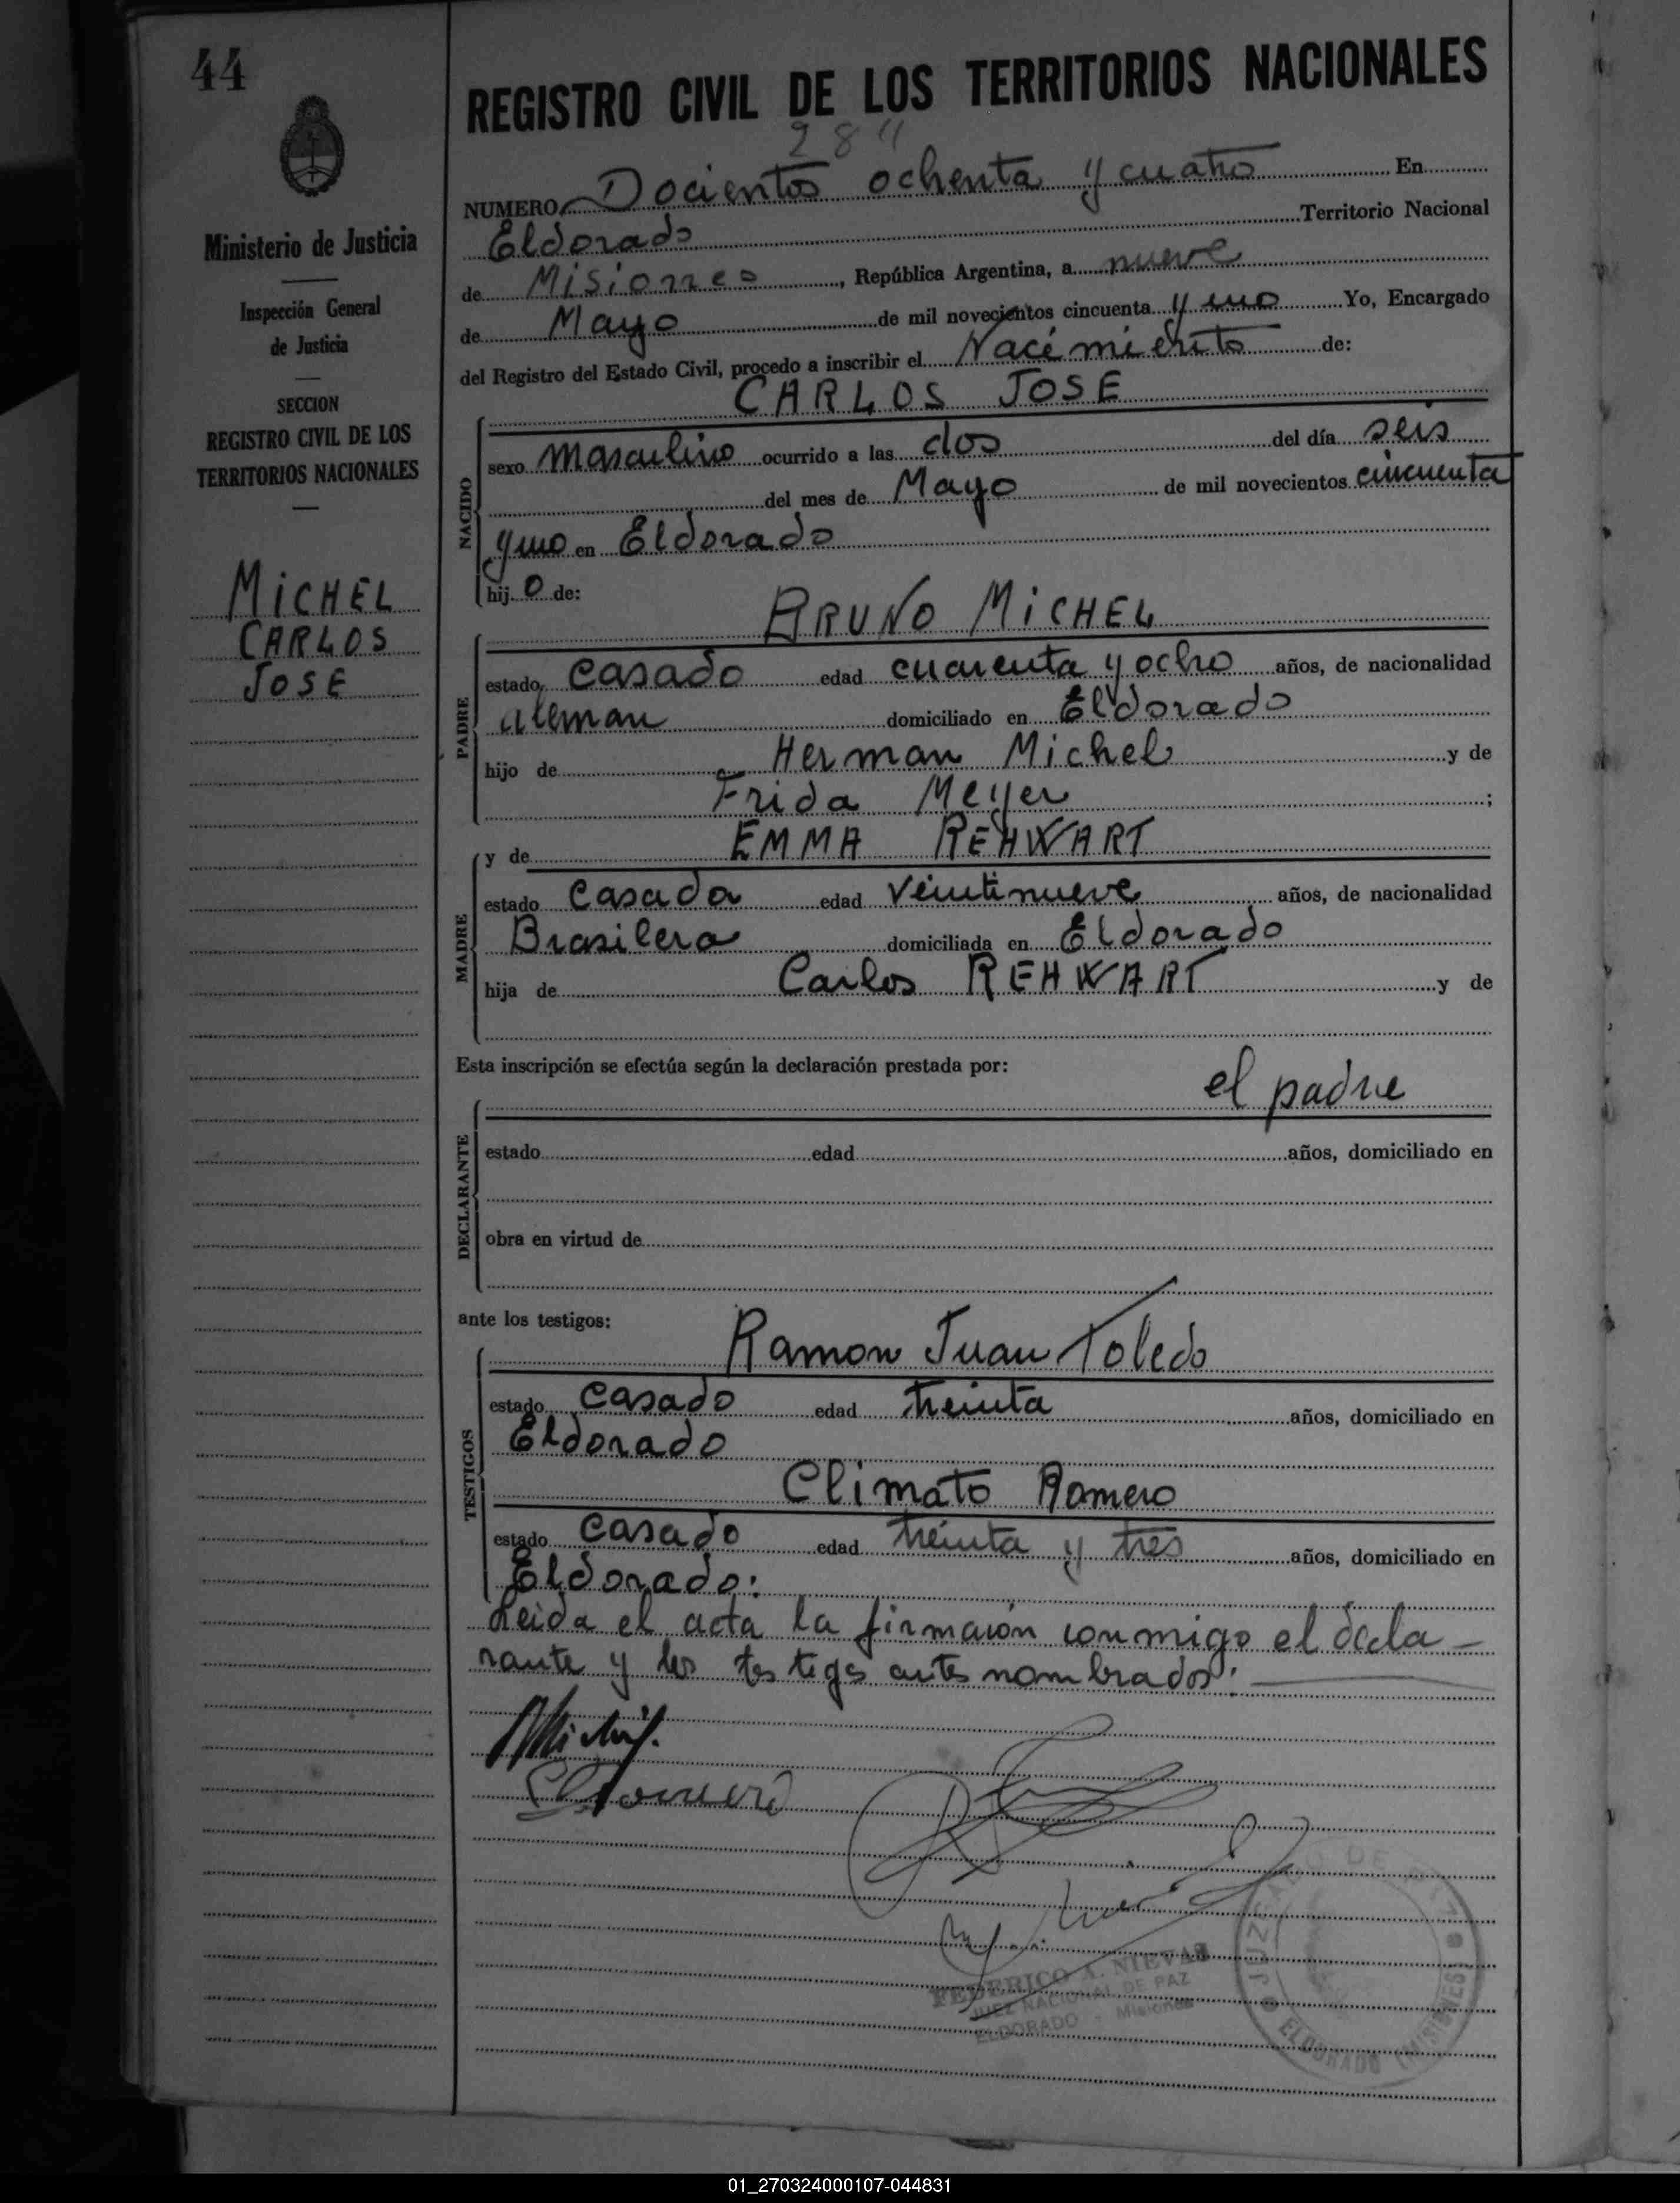 44
Ministerio de Justicia
Inspección General
de Justicia
SECCION
REGISTRO CIVIL DE LOS
TERRITORIOS NACIONALES
MICHEL
CARLOS
JOSE
REGISTRO CIVIL DE LOS TERRITORIOS NACIONALES
284
NUMERO Docientos ochenta y cuatro En
Eldorado Territorio Nacional
de Misiones, República Argentina, a nueve
de Mayo de mil novecientos cincuenta y uno Yo, Encargado
del Registro del Estado Civil, procedo a inscribir el Nacimiento de:
CARLOS JOSE
NACIDO
sexo masculino ocurrido a las dos del día seis
del mes de Mayo de mil novecientos cincuenta
y uno en Eldorado
hijo de:
BRUNO MICHEL
PADRE
estado casado edad cuarenta y ocho años, de nacionalidad
aleman domiciliado en Eldorado
hijo de Herman Michel y de
Frida Meyer;
MADRE
y de EMMA REHWART
estado casada edad veintinueve años, de nacionalidad
Brasilera domiciliada en Eldorado
hija de Carlos REHWART y de
Esta inscripción se efectúa según la declaración prestada por:
el padre
DECLARANTE
estado edad años, domiciliado en
obra en virtud de
ante los testigos:
Ramon Juan Toledo
TESTIGOS
estado casado edad treinta años, domiciliado en
Eldorado
Climato Romero
estado casado edad treinta y tres años, domiciliado en
Eldorado:
Leida el acta la firmaron conmigo el decla-
rante y los testigs antes nombrados:
Romero
FEDERICO A. NIEVAS
JUEZ NACIONAL DE PAZ
ELDORADO - Misiones
JUZGADO DE PAZ
ELDORADO (MISIONES)
01_270324000107-044831